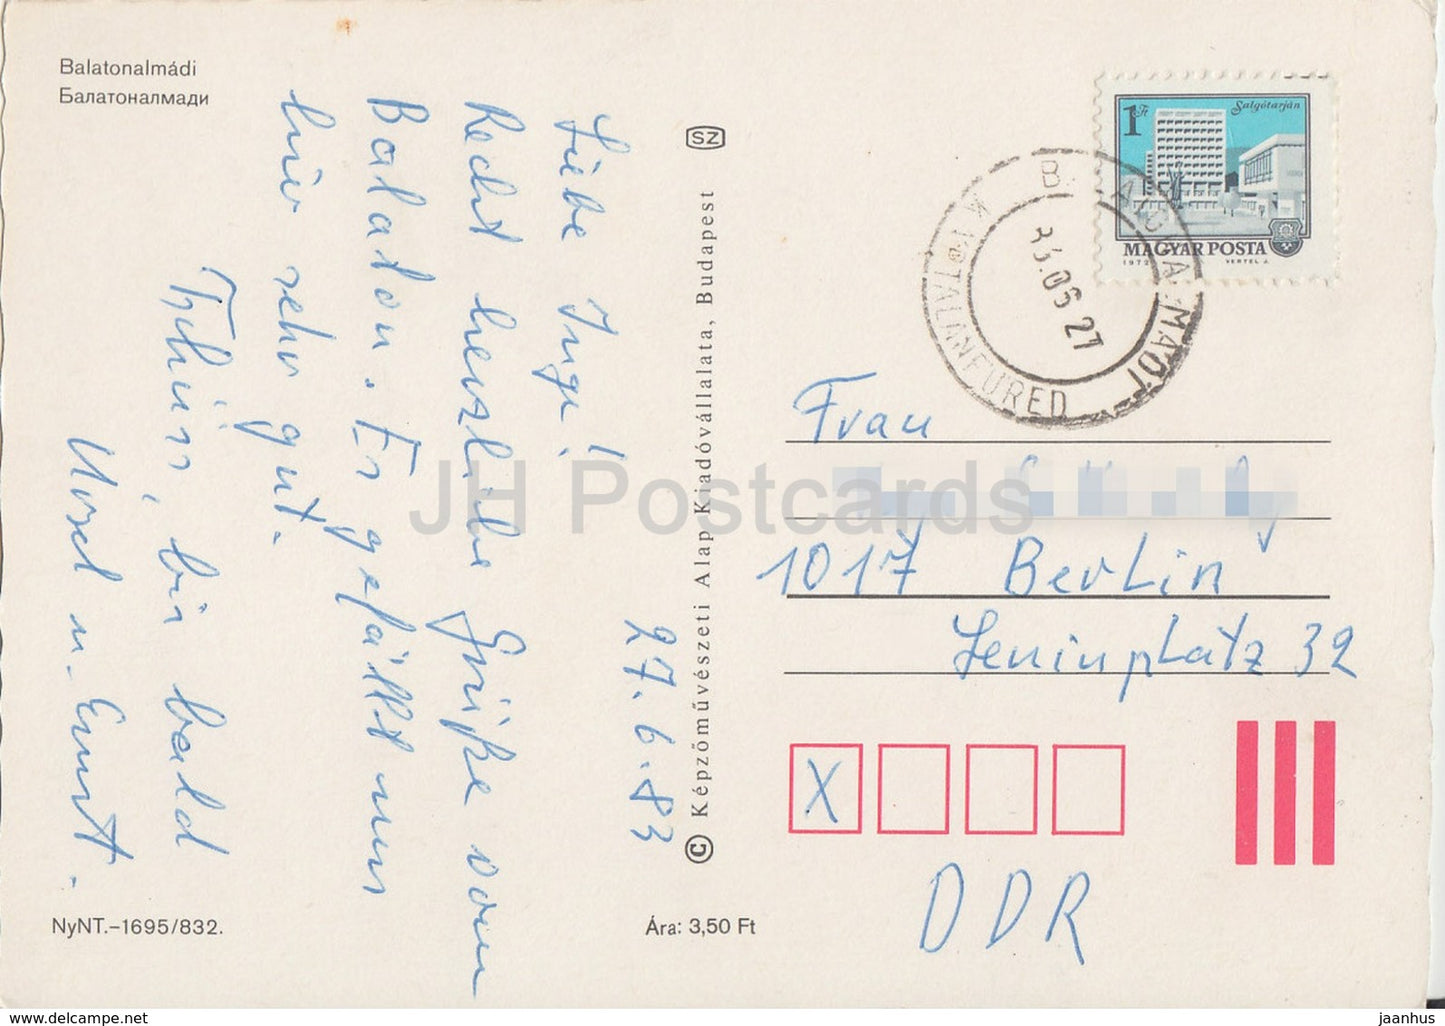 Balatonalmádi
Балатоналмади
27.6.83
Liebe Inge!
Recht herzliche Grüße vom
Balaton. Es gefällt uns
hier sehr gut.
Tschüss, bis bald
Ursel u. Ernst.
NyNT.-1695/832.
Ára: 3,50 Ft
SZ
© Képzőművészeti Alap Kiadóvállalata, Budapest
1 Ft
Salgótarján
MAGYAR POSTA
1972
VERTEL J.
83.06.27
Frau
1017 Berlin
Leninplatz 32
X
DDR
JH Postcards
jaanhus.ecwid.com
jaanhus